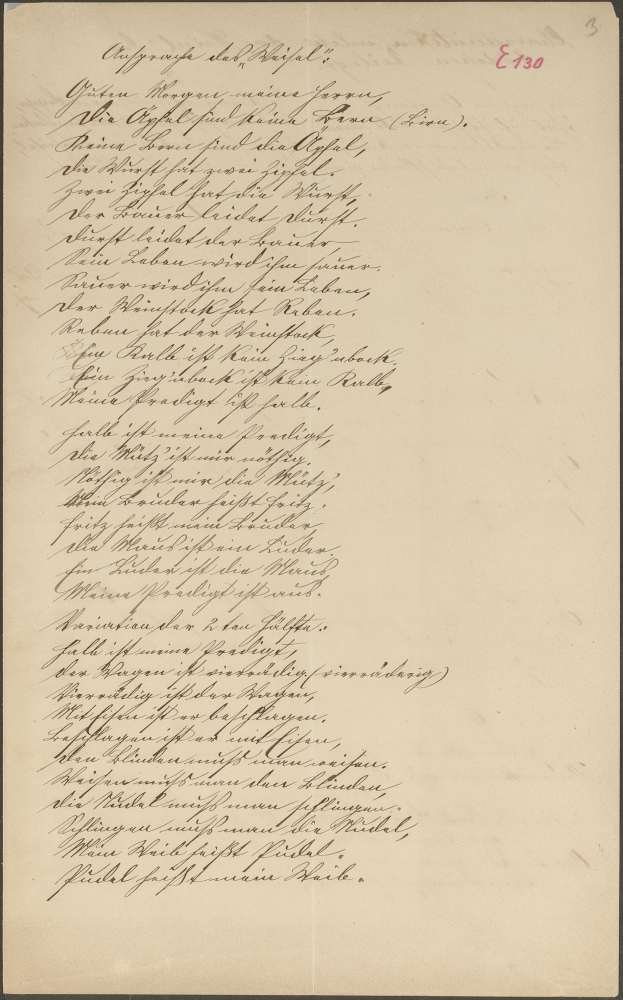 3
Ansprache des „Weisel":
E 130
Guten Morgen meine Herrn,
Die Äpfel sind keine Bern (Birn).
Keine Bern sind die Äpfel,
Die Wurst hat zwei Zipfel.
Zwei Zipfel hat die Wurst,
Der Bauer leidet Durst.
Durst leidet der Bauer,
Sein Leben wird ihm sauer.
Sauer wird ihm sein Leben,
Der Weinstock hat Reben.
Reben hat der Weinstock,
Ein Kalb ist kein Zieg'nbock.
Ein Zieg'nbock ist kein Kalb,
Meine Predigt ist halb.
Halb ist meine Predigt,
Die Mütz' ist mir nöthig.
Nöthig ist mir die Mütz',
Mein Bruder heißt Fritz.
Fritz heißt mein Bruder,
Die Maus ist ein Luder.
Ein Luder ist die Maus,
Meine Predigt ist aus.
Variation der 2ten Hälfte:
Halb ist meine Predigt,
Der Wagen ist vierrädig (vierräderig)
Vierrädig ist der Wagen,
Mit Eisen ist er beschlagen.
Beschlagen ist er mit Eisen,
Den Blinden muß man weisen.
Weisen muß man den Blinden,
Die Nudel muß man schlingen.
Schlingen muß man die Nudel,
Mein Weib heißt Pudel.
Pudel heißt mein Weib.